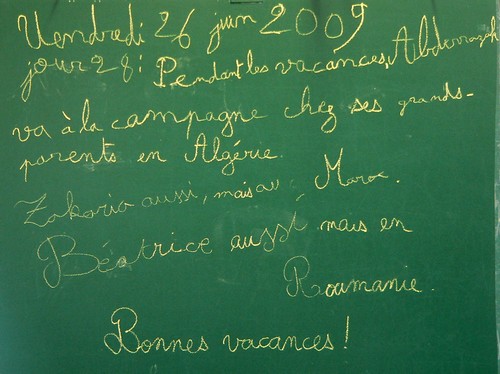 Vendredi 26 juin 2009
jour 28 : Pendant les vacances, Abderrazak
va à la campagne chez ses grands-
parents en Algérie.
Zakaria aussi, mais au Maroc.
Béatrice aussi mais en
Roumanie.
Bonnes vacances !